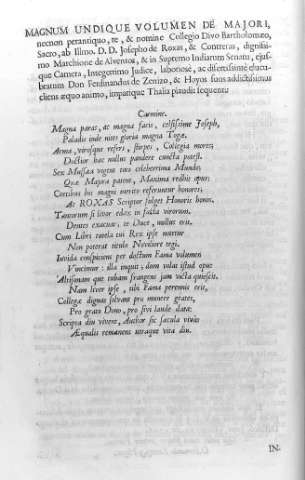 MAGNUM UNDIQUE VOLUMEN DE MAJORI,
necnon perantiquo, te, & nomine Collegio Divo Bartholomæo,
Sacro, ab Illmo. D. D. Josepho de Roxas, & Contreras, dignissi-
mo Marchione de Alventos, & in Supremo Indiarum Senatu, ejus-
que Camera, Integerrimo Judice, laboriosè, ac disertissimè elucu-
bratum Don Ferdinandus de Zenizo, & Hoyos suus addictissimus
cliens æquo animo, imparique Thalia plaudit sequenti:
Carmine.
Magna paras, ac magna facis, celsissime Joseph,
Palladis inde nites gloria magna Togæ,
Arma, virosque refers, stirpes, Collegia mores;
Doctior hæc nullus pandere cuncta potest.
Sex Musæa vogue tua celeberrima Mundo;
Quæ Majora patent, Maxima reddis opus:
Cœtibus hic magni merito referuntur honores;
At ROXAS Scriptor fulget Honoris honos.
Tantorum si livor edax in facta virorum,
Dentes exacuat, te Duce, nullus erit.
Cum Libri tutela tui Rex ipse notetur
Non poterat titulo Nobiliore tegi.
Invida conspicuum per doctum Fama volumen
Vincimur, illa inquit, dum volat istud opus
Altisonam que tubam frangens jam victa quiescit.
Nam liber ipse, tibi Fama perennis erit,
Collegæ dignas solvant pro munere grates,
Pro grato Dono, pro sibi laude data:
Scripta diu vivent, Author sic sæcula vivas
Æqualis remanens utraque vita diu.
IN-